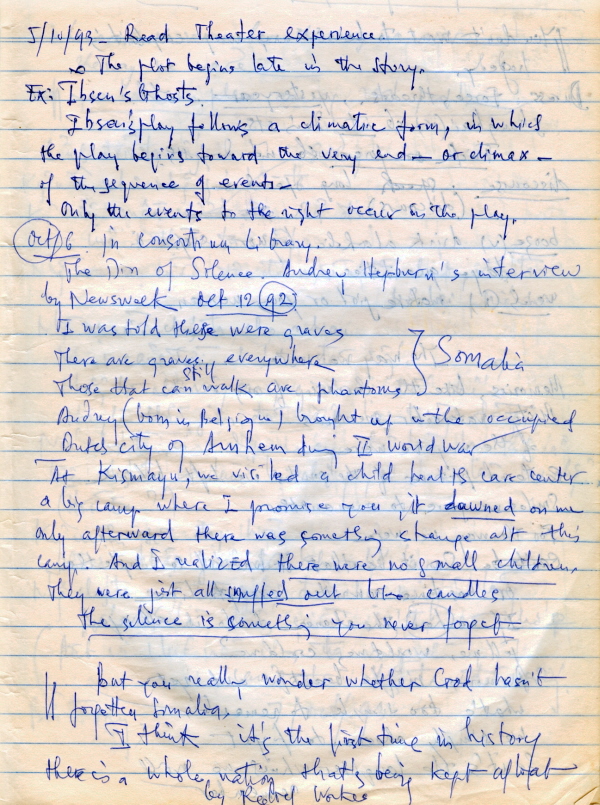 5/10/93 - Read Theater experience.
The plot begins late in the story.
Ex: Ibsen's Ghosts.
Ibsen's play follows a climatic form, in which
the play begins toward the very end - or climax -
of the sequence of events -
Only the events to the right occur in the play.
Oct/6 in consortium Library.
The Din of Silence. Audrey Hepburn's interview
by Newsweek Oct 12 92.
I was told these were graves
There are graves everywhere
Those that can still walk are phantoms } Somalia
Audrey (born in Belgique) brought up in the occupied
Dutch city of Arnhem during II world war
At Kismayu, we visited a child health care center
a big camp where I promise you, it dawned on me
only afterward there was something strange abt this
camp. And I realized there were no small children.
They were just all snuffed out like candles
The silence is something you never forget
But you really wonder whether God hasn't
forgotten Somalia.
I think it's the first time in history
there is a whole nation that's being kept afloat
by Relief